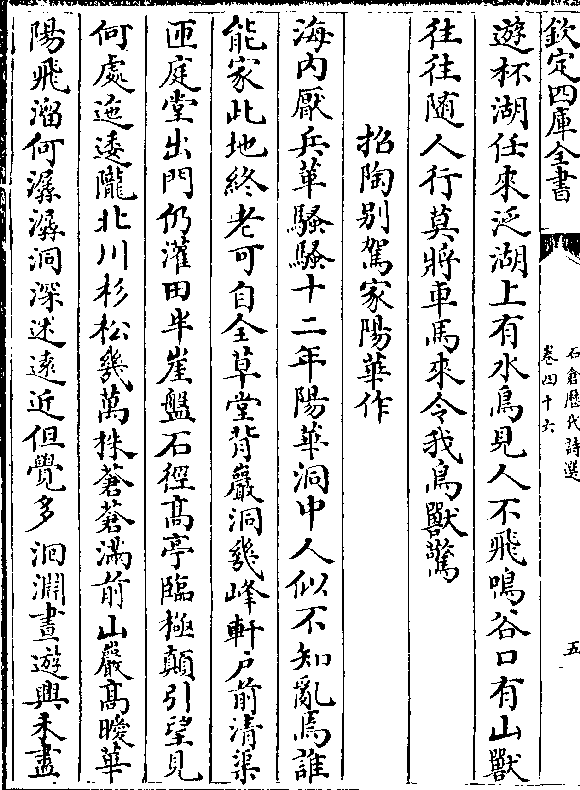 欽定四庫全書
石倉歴代詩選
卷四十六
五
遊杯湖任來泛湖上有水鳥見人不飛鳴谷口有山獸
往往隨人行莫將車馬來令我鳥獸驚
招陶别駕家陽華作
海内厭兵革騷騷十二年陽華洞中人似不知亂焉誰
能家此地終老可自全草堂背巖洞幾峰軒户前清渠
匝庭堂出門仍灌田半崖盤石徑髙亭臨極顛引望見
何處迤逶隴北川杉松幾萬株蒼蒼滿前山巖髙曖華
陽飛溜何潺潺洞深迷逺近但覺多洄淵晝遊興未盡